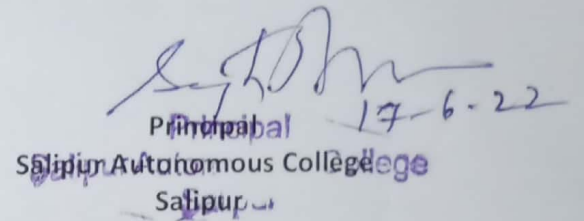 17-6-22
Principal
Salipur Autonomous College
Salipur